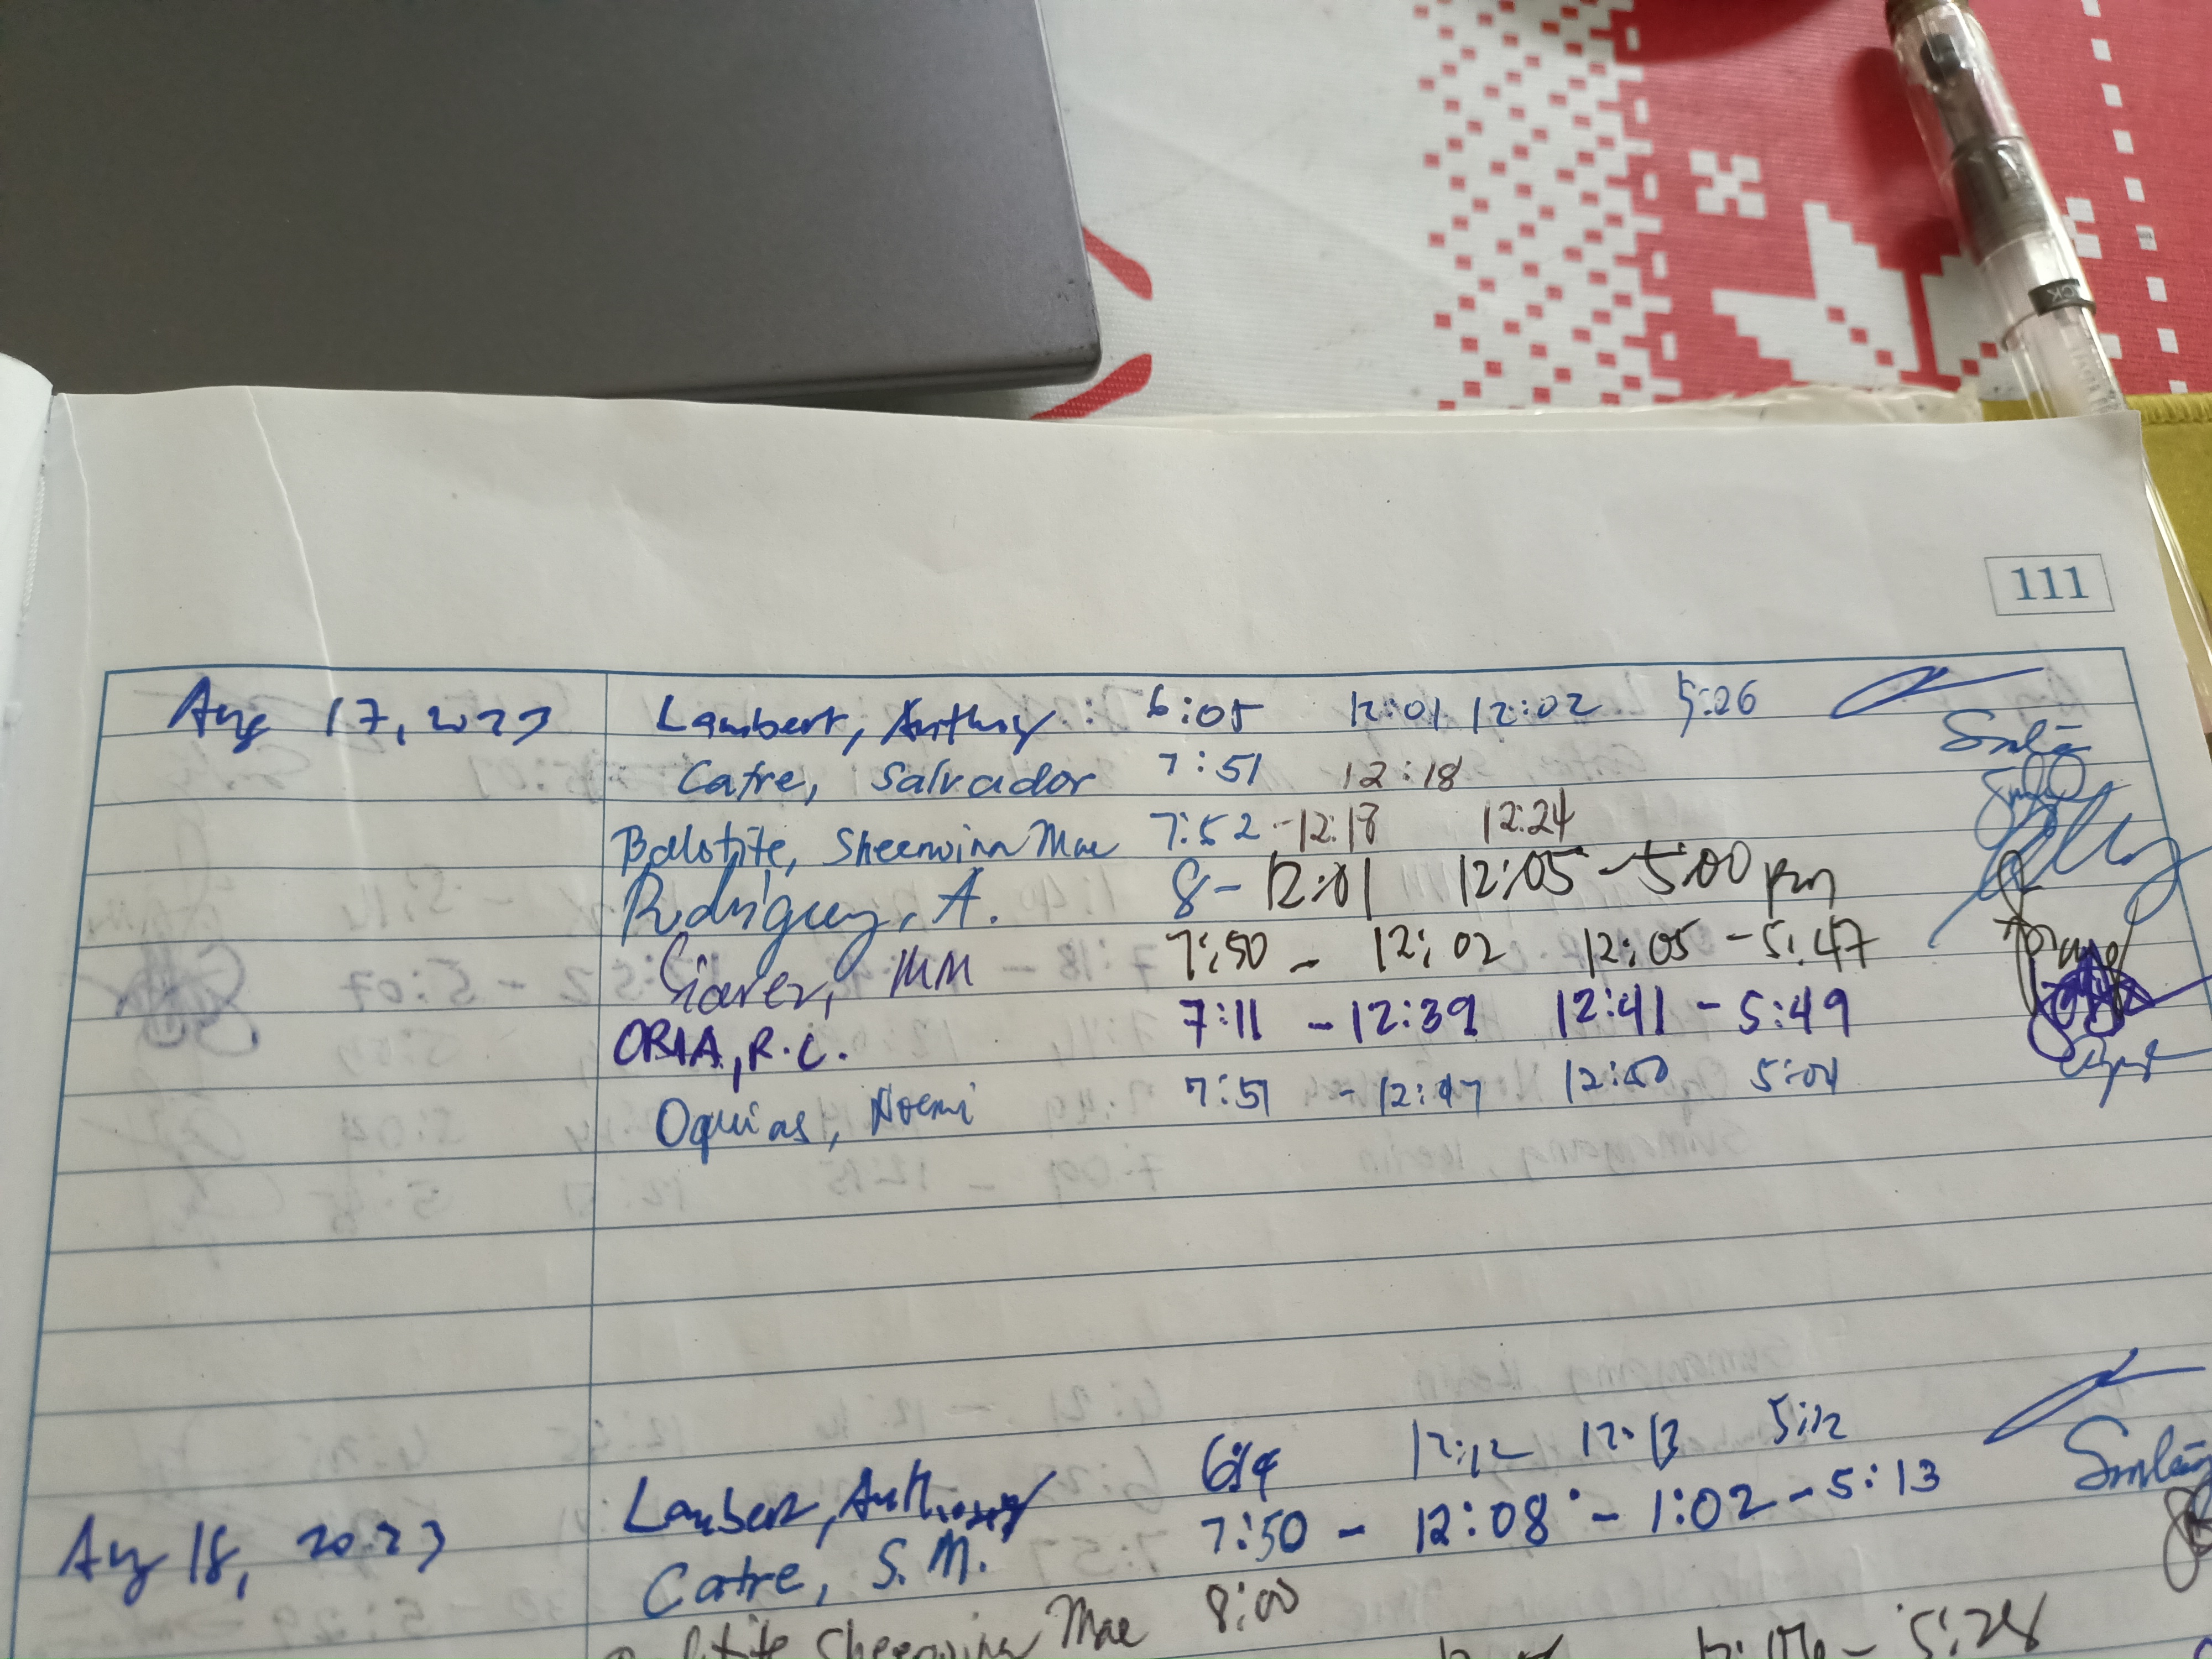 111
Aug 17, 2023 Lambert, Anthony 6:05 12:01 12:02 5:26
Catre, Salvador 7:51 12:18
Balotite, Sheenwinn Mae 7:52 - 12:18 12:24
Rodriguez, A. 8 - 12:01 12:05 - 5:00 pm
MM 7:50 - 12:02 12:05 - 5:47
ORIA, R.C. 7:11 - 12:39 12:41 - 5:49
Oquias, Noemi 7:51 - 12:47 12:50 5:04
Aug 18, 2023 Lambert, Anthony 6:14 12:12 12:13 5:12
Catre, S.M. 7:50 - 12:08 - 1:02 - 5:13
Sheenwinn Mae 8:00 5:28